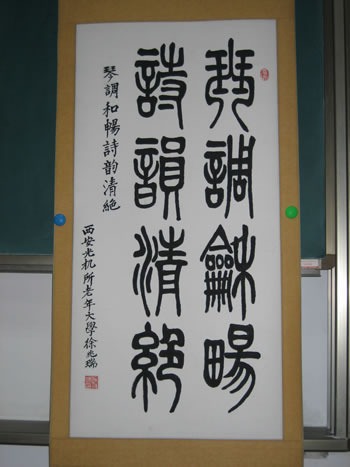 琴調龢暢
詩韻清絕
琴調和暢詩韵清絕
西安光机所老年大學徐兆瑞